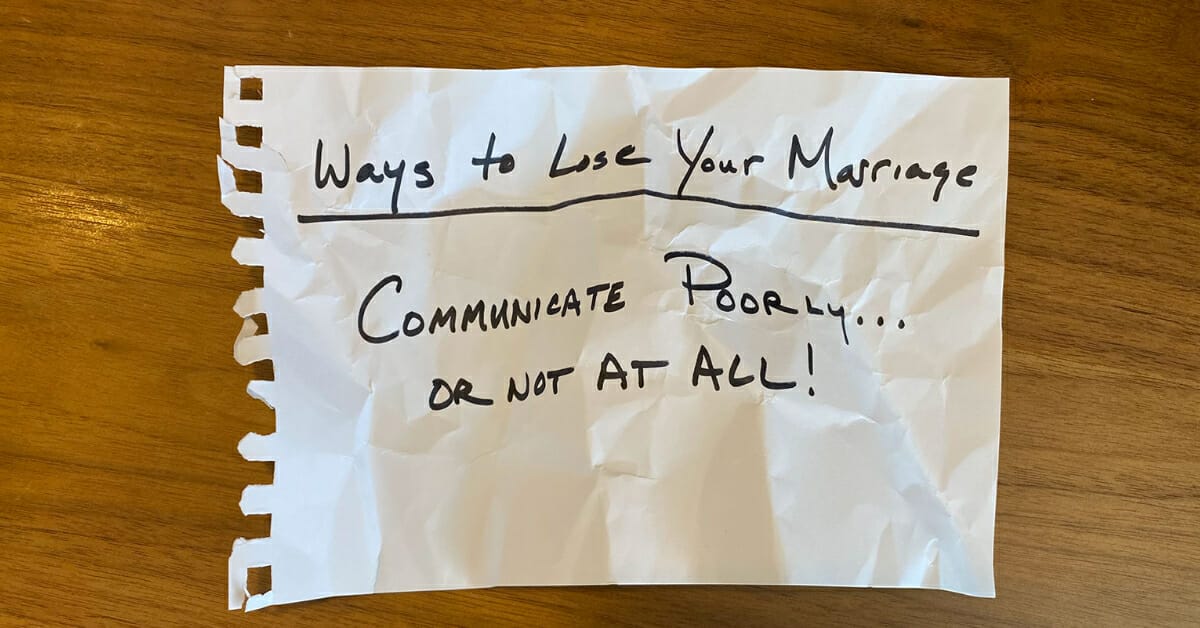 Ways to Lose Your Marriage
COMMUNICATE POORLY...
OR NOT AT ALL!